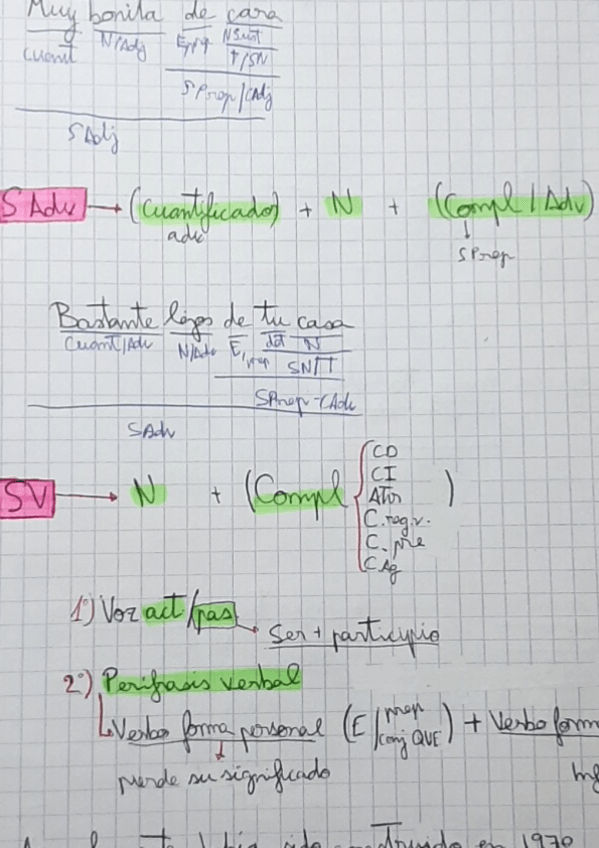 Muy bonita de cara
Cuant N/Adj E/prep N Sust
T/SN
S Prep/CAdj
S Adj
S Adv → (Cuantificador) + N + (Compl / Adv)
adv ↓
S Prep
Bastante lejos de tu casa
Cuant/Adv N/Adv E/prep det N
SN/T
SPrep-CAdv
SAdv
SV → N + (Compl { CD
CI
Atr
C.reg.v.
C. Pre
C Ag )
1º) Voz act/pas → Ser + participio
2º) Perífrasis verbal
Verbo forma personal (E/prep conj QUE) + Verbo form
pierde su significado
en 1970